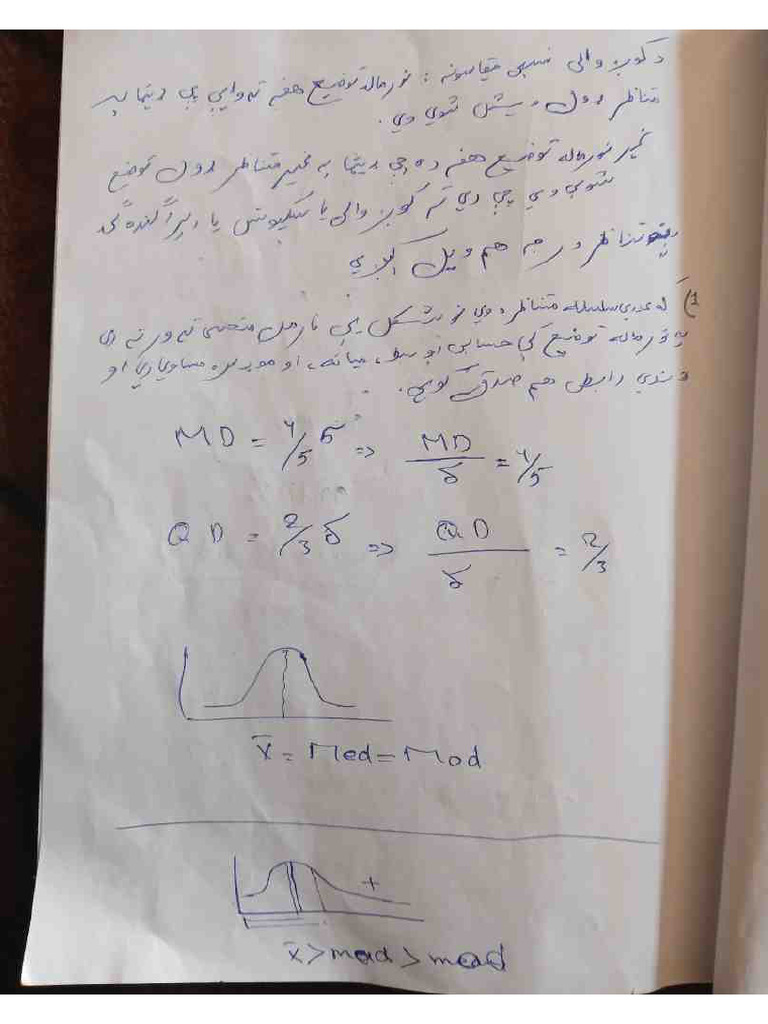 د کوږوالي نسبي مقیاسونه : نورماله توضیع هغه ته وایي چې دیتا په
متناظر ډول ویشل شوي وي .
غیر نورماله توضیع هغه ده چې دیتا په غیر متناظر ډول توضیع
شوي وي چې دې ته کوږوالی یا سکیونس یا
تناظر درجه هم ویل کېږي
1) که عددی سلسله متناظره وي نو شکل یې نارمل منحنی ته ورته وي
په نورماله توضیع کې حسابي اوسط ، میانه ، او موډ سره مساوي دي او
لاندې رابطې هم صدق کوي .
MD = 4/5 δ => MD/δ = 4/5
QD = 2/3 δ => QD/δ = 2/3
x̄ = Med = Mod
+
x̄ > med > mod